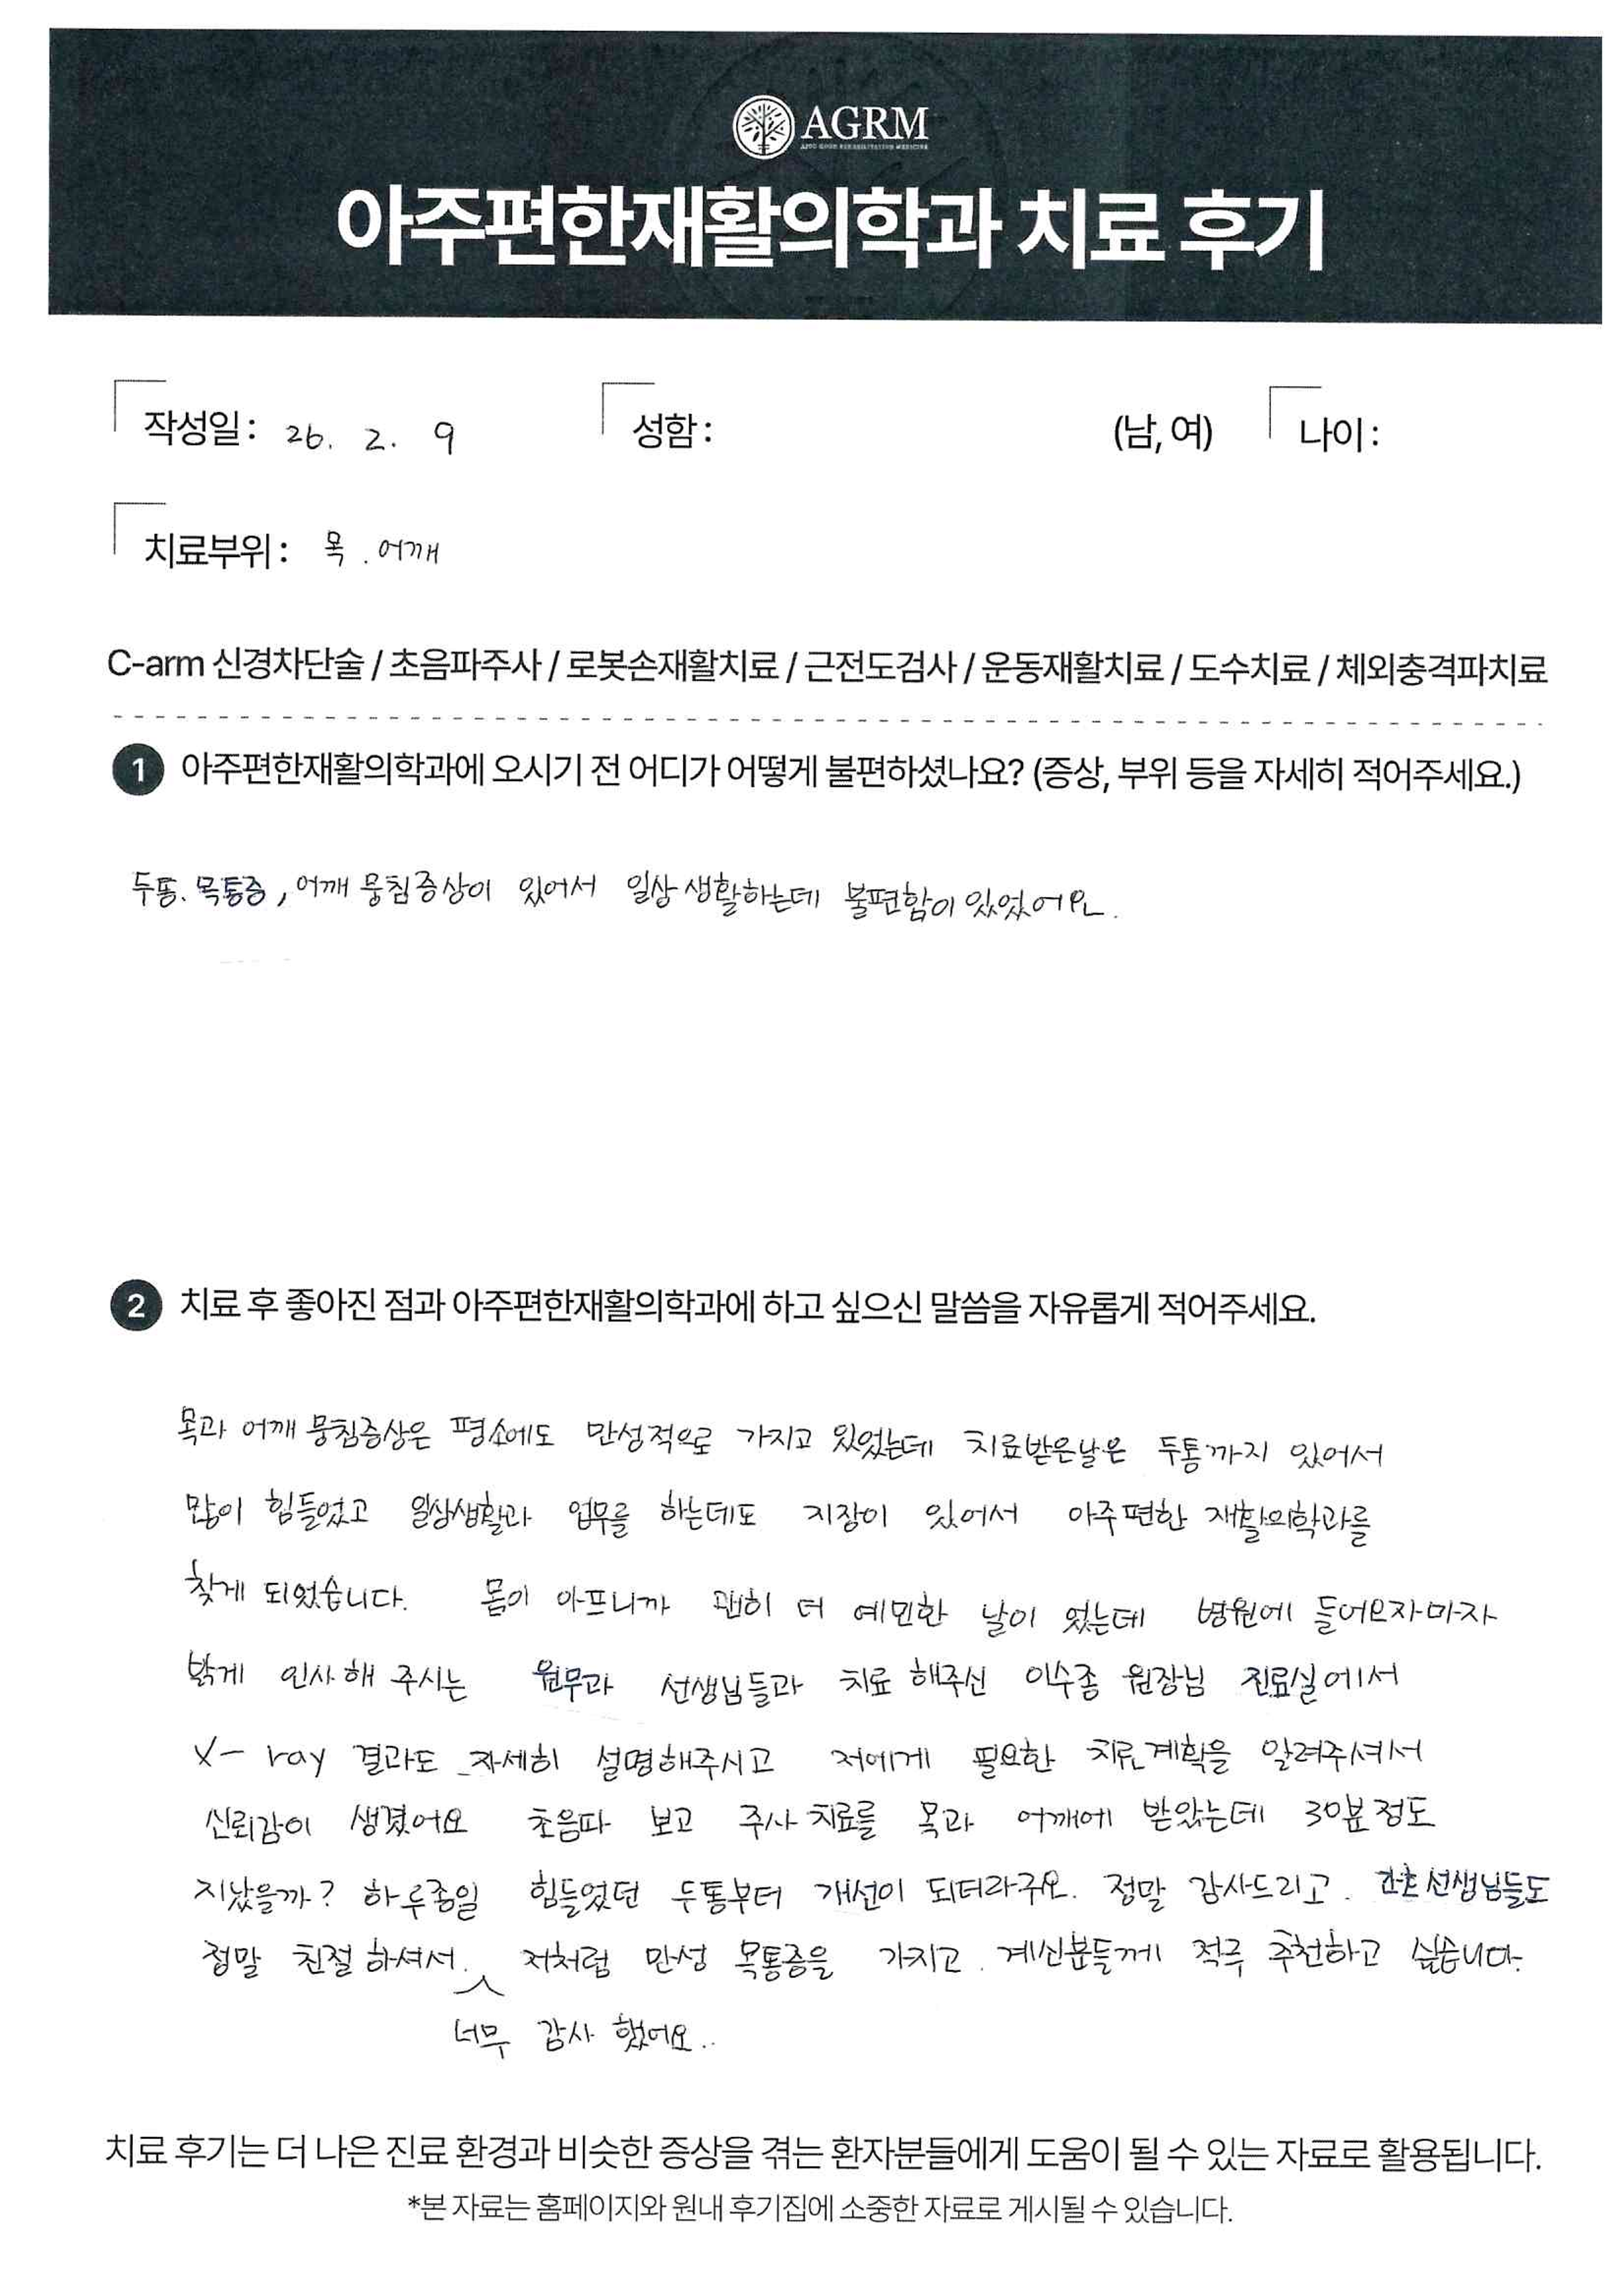 AGRM
아주편한재활의학과 치료 후기
작성일: 26. 2. 9 성함: (남, 여) 나이:
치료부위: 목. 어깨
C-arm 신경차단술 / 초음파주사 / 로봇손재활치료 / 근전도검사 / 운동재활치료 / 도수치료 / 체외충격파치료
1 아주편한재활의학과에 오시기 전 어디가 어떻게 불편하셨나요? (증상, 부위 등을 자세히 적어주세요.)
두통. 목통증, 어깨 뭉침증상이 있어서 일상생활하는데 불편함이 있었어요.
2 치료 후 좋아진 점과 아주편한재활의학과에 하고 싶으신 말씀을 자유롭게 적어주세요.
목과 어깨 뭉침증상은 평소에도 만성적으로 가지고 있었는데 치료받은날은 두통까지 있어서
많이 힘들었고 일상생활과 업무를 하는데도 지장이 있어서 아주편한 재활의학과를
찾게 되었습니다. 몸이 아프니까 괜히 더 예민한 날이 었는데 병원에 들어오자마자
밝게 인사해 주시는 원무과 선생님들과 치료 해주신 이수종 원장님 진료실에서
X-ray 결과도 자세히 설명해주시고 저에게 필요한 치료계획을 알려주셔서
신뢰감이 생겼어요 초음파 보고 주사 치료를 목과 어깨에 받았는데 30분 정도
지났을까? 하루종일 힘들었던 두통부터 개선이 되더라구요. 정말 감사드리고. 선생님들도
정말 친절하셔서. 저처럼 만성 목통증을 가지고. 계신분들께 적극 추천하고 싶습니다.
너무 감사 했어요..
치료 후기는 더 나은 진료 환경과 비슷한 증상을 겪는 환자분들에게 도움이 될 수 있는 자료로 활용됩니다.
*본 자료는 홈페이지와 원내 후기집에 소중한 자료로 게시될 수 있습니다.